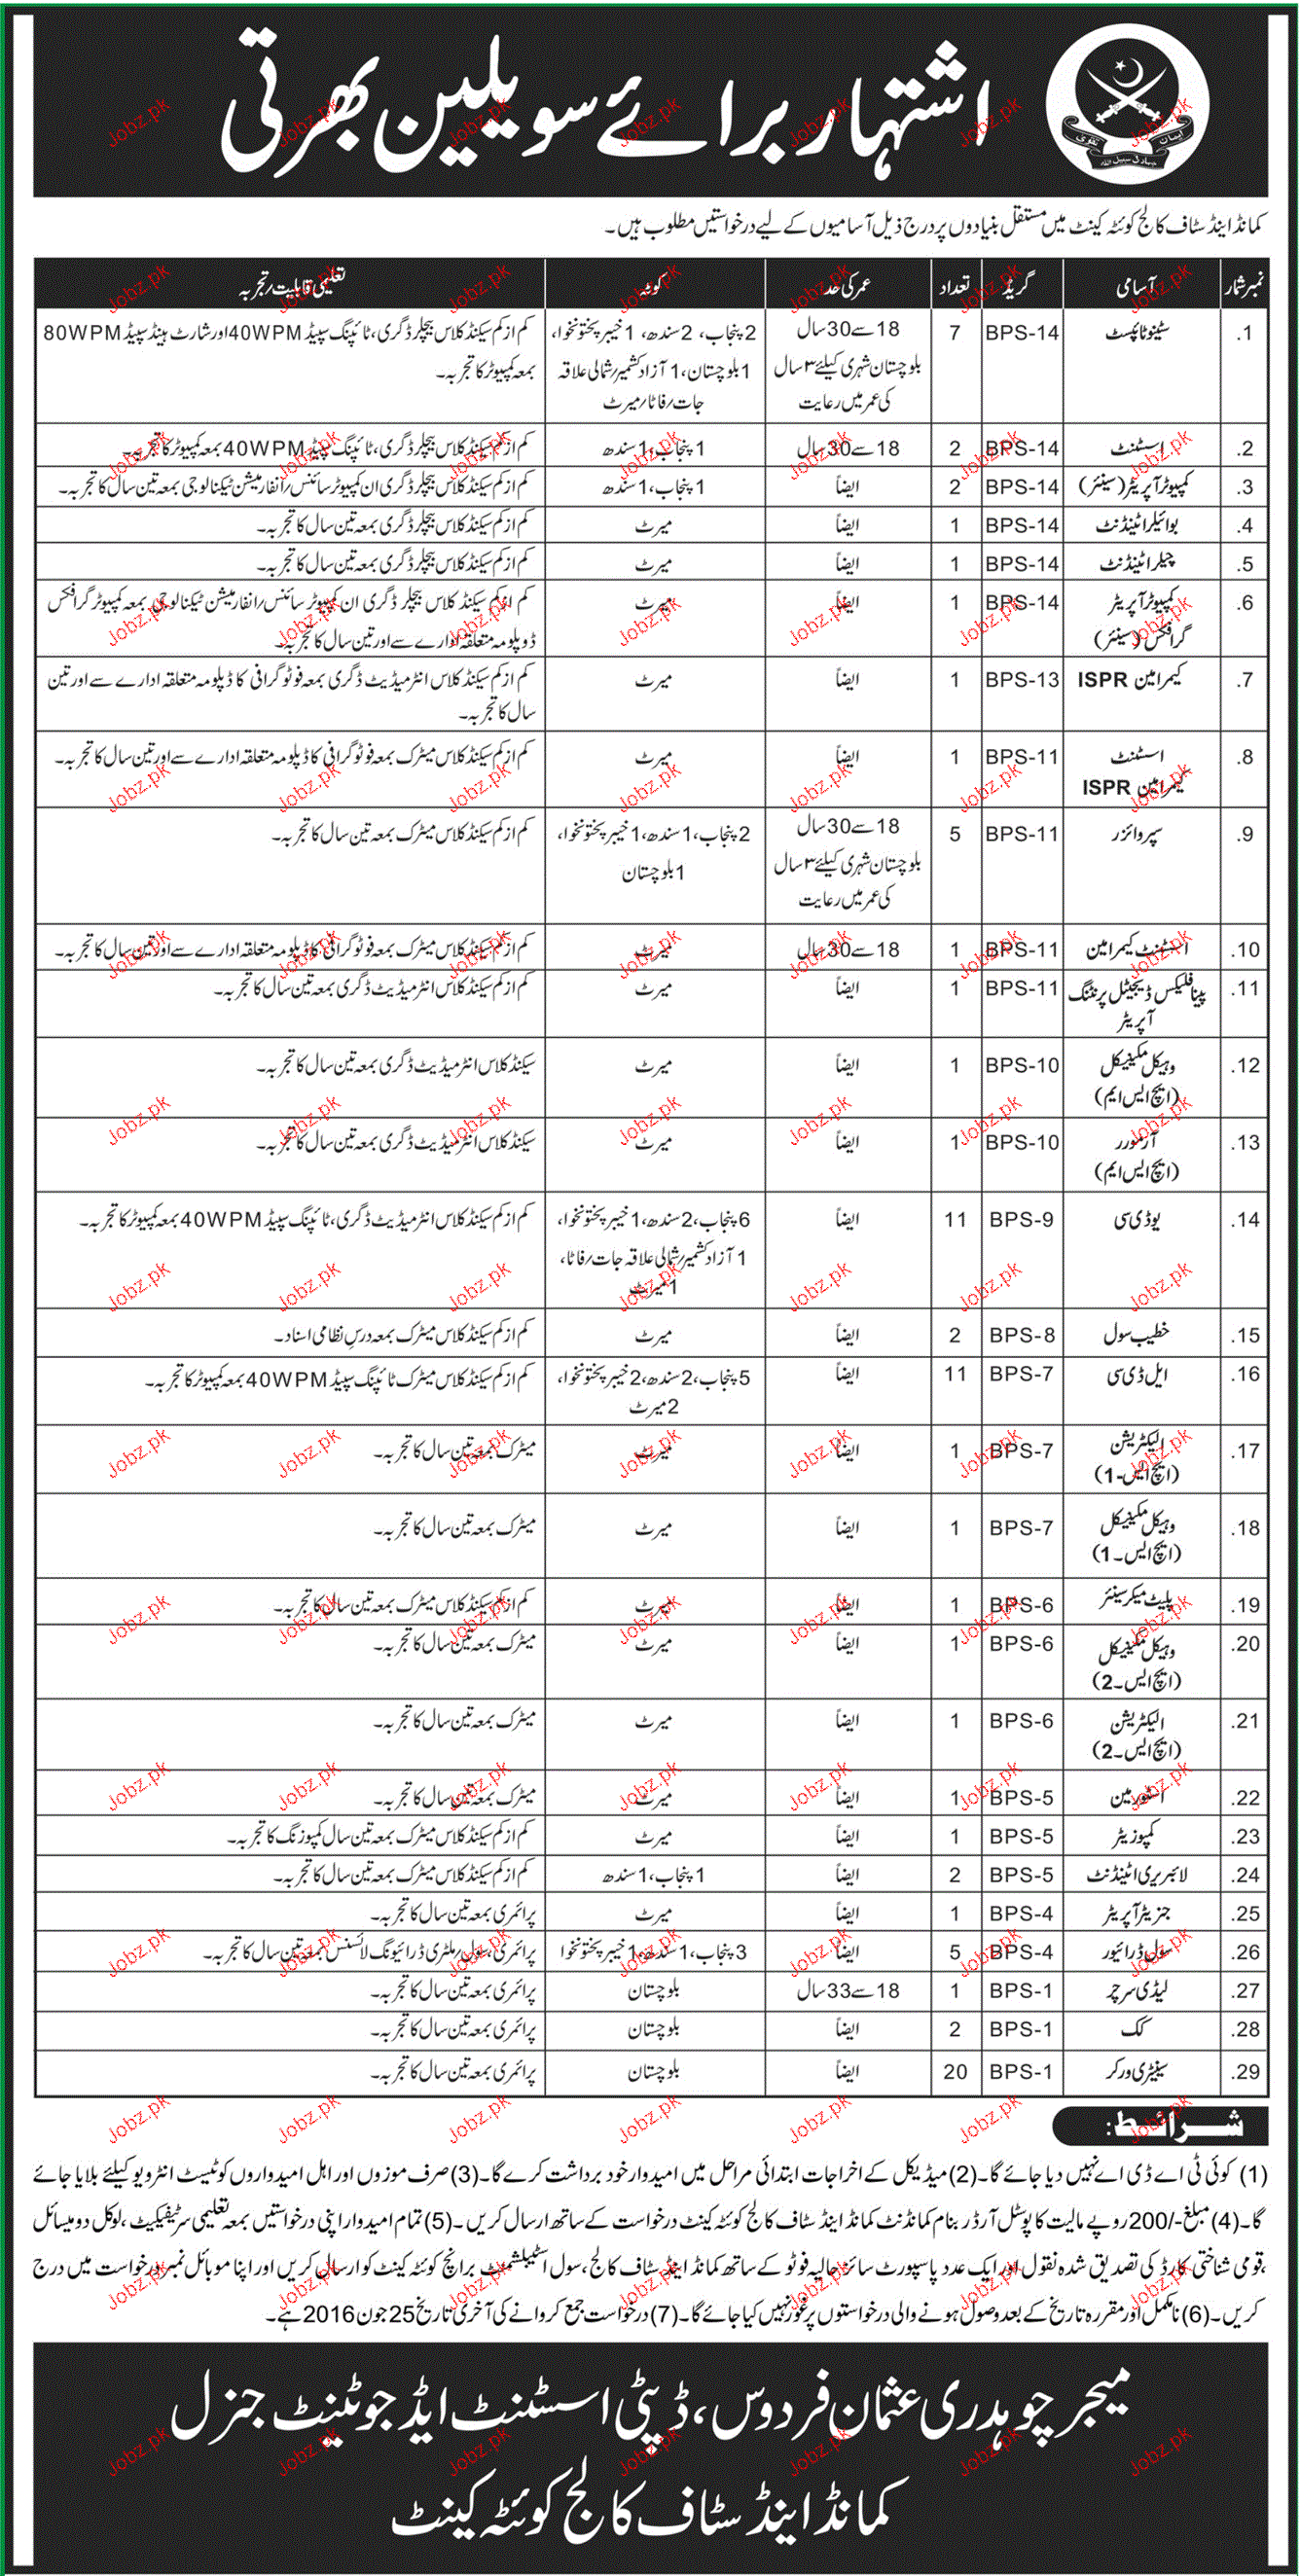 اشتہار برائے سویلین بھرتی
ایمان تقوی
جہاد فی سبیل اللہ
کمانڈ اینڈ سٹاف کالج کوئٹہ کینٹ میں مستقل بنیادوں پر درج ذیل آسامیوں کے لیے درخواستیں مطلوب ہیں۔
نمبر شمار آسامی گریڈ تعداد عمر کی حد کوٹہ تعلیمی قابلیت/تجربہ
1. سٹینو ٹائپسٹ BPS-14 7 18 سے 30 سال 2 پنجاب، 2 سندھ، 1 خیبر پختونخوا، کم از کم سیکنڈ کلاس بیچلر ڈگری، ٹائپنگ سپیڈ 40WPM اور شارٹ ہینڈ سپیڈ 80WPM
بلوچستان شہری کیلئے ۳ سال 1 بلوچستان، 1 آزاد کشمیر/شمالی علاقہ بمعہ کمپیوٹر کا تجربہ۔
کی عمر میں رعایت جات/فاٹا/میرٹ
2. اسسٹنٹ BPS-14 2 18 سے 30 سال 1 پنجاب، 1 سندھ کم از کم سیکنڈ کلاس بیچلر ڈگری، ٹائپنگ سپیڈ 40WPM بمعہ کمپیوٹر کا تجربہ۔
3. کمپیوٹر آپریٹر (سینئر) BPS-14 2 ایضاً 1 پنجاب، 1 سندھ کم از کم سیکنڈ کلاس بیچلر ڈگری ان کمپیوٹر سائنس/انفارمیشن ٹیکنالوجی بمعہ تین سال کا تجربہ۔
4. بوائیلر اٹینڈنٹ BPS-14 1 ایضاً میرٹ کم از کم سیکنڈ کلاس بیچلر ڈگری بمعہ تین سال کا تجربہ۔
5. چیلر اٹینڈنٹ BPS-14 1 ایضاً میرٹ کم از کم سیکنڈ کلاس بیچلر ڈگری بمعہ تین سال کا تجربہ۔
6. کمپیوٹر آپریٹر BPS-14 1 ایضاً میرٹ کم از کم سیکنڈ کلاس بیچلر ڈگری ان کمپیوٹر سائنس/انفارمیشن ٹیکنالوجی بمعہ کمپیوٹر گرافکس
گرافکس (سینئر) ڈوپلومہ متعلقہ ادارے سے اور تین سال کا تجربہ۔
7. کیمرامین ISPR BPS-13 1 ایضاً میرٹ کم از کم سیکنڈ کلاس انٹرمیڈیٹ ڈگری بمعہ فوٹوگرافی کا ڈپلومہ متعلقہ ادارے سے اور تین
سال کا تجربہ۔
8. اسسٹنٹ BPS-11 1 ایضاً میرٹ کم از کم سیکنڈ کلاس میٹرک بمعہ فوٹوگرافی کا ڈپلومہ متعلقہ ادارے سے اور تین سال کا تجربہ۔
کیمرامین ISPR
9. سپروائزر BPS-11 5 18 سے 30 سال 2 پنجاب، 1 سندھ، 1 خیبر پختونخوا، کم از کم سیکنڈ کلاس میٹرک بمعہ تین سال کا تجربہ۔
بلوچستان شہری کیلئے ۳ سال 1 بلوچستان
کی عمر میں رعایت
10. اسسٹنٹ کیمرامین BPS-11 1 18 سے 30 سال میرٹ کم از کم سیکنڈ کلاس میٹرک بمعہ فوٹوگرافی کا ڈپلومہ متعلقہ ادارے سے اور تین سال کا تجربہ۔
11. پینافلیکس ڈیجیٹل پرنٹنگ BPS-11 1 ایضاً میرٹ کم از کم سیکنڈ کلاس انٹرمیڈیٹ ڈگری بمعہ تین سال کا تجربہ۔
آپریٹر
12. وہیکل مکینیکل BPS-10 1 ایضاً میرٹ سیکنڈ کلاس انٹرمیڈیٹ ڈگری بمعہ تین سال کا تجربہ۔
(ایچ ایس ایم)
13. آرمورر BPS-10 1 ایضاً میرٹ سیکنڈ کلاس انٹرمیڈیٹ ڈگری بمعہ تین سال کا تجربہ۔
(ایچ ایس ایم)
14. یو ڈی سی BPS-9 11 ایضاً 6 پنجاب، 2 سندھ، 1 خیبر پختونخوا، کم از کم سیکنڈ کلاس انٹرمیڈیٹ ڈگری، ٹائپنگ سپیڈ 40WPM بمعہ کمپیوٹر کا تجربہ۔
1 آزاد کشمیر/شمالی علاقہ جات/فاٹا،
1 میرٹ
15. خطیب سول BPS-8 2 ایضاً میرٹ کم از کم سیکنڈ کلاس میٹرک بمعہ درس نظامی اسناد۔
16. ایل ڈی سی BPS-7 11 ایضاً 5 پنجاب، 2 سندھ، 2 خیبر پختونخوا، کم از کم سیکنڈ کلاس میٹرک ٹائپنگ سپیڈ 40WPM بمعہ کمپیوٹر کا تجربہ۔
2 میرٹ
17. الیکٹریشن BPS-7 1 ایضاً میرٹ میٹرک بمعہ تین سال کا تجربہ۔
(ایچ ایس-1)
18. وہیکل مکینیکل BPS-7 1 ایضاً میرٹ میٹرک بمعہ تین سال کا تجربہ۔
(ایچ ایس۔1)
19. پلیٹ میکر سینئر BPS-6 1 ایضاً میرٹ کم از کم سیکنڈ کلاس میٹرک بمعہ تین سال کا تجربہ۔
20. وہیکل مکینیکل BPS-6 1 ایضاً میرٹ میٹرک بمعہ تین سال کا تجربہ۔
(ایچ ایس۔2)
21. الیکٹریشن BPS-6 1 ایضاً میرٹ میٹرک بمعہ تین سال کا تجربہ۔
(ایچ ایس۔2)
22. اسٹور مین BPS-5 1 ایضاً میرٹ میٹرک بمعہ تین سال کا تجربہ۔
23. کمپوزیٹر BPS-5 1 ایضاً میرٹ کم از کم سیکنڈ کلاس میٹرک بمعہ تین سال کمپوزنگ کا تجربہ۔
24. لائبریری اٹینڈنٹ BPS-5 2 ایضاً 1 پنجاب، 1 سندھ کم از کم سیکنڈ کلاس میٹرک بمعہ تین سال کا تجربہ۔
25. جنریٹر آپریٹر BPS-4 1 ایضاً میرٹ پرائمری بمعہ تین سال کا تجربہ۔
26. سول ڈرائیور BPS-4 5 ایضاً 3 پنجاب، 1 سندھ، 1 خیبر پختونخوا پرائمری، سول/ملٹری ڈرائیونگ لائسنس بمعہ تین سال کا تجربہ۔
27. لیڈی سرچر BPS-1 1 18 سے 33 سال بلوچستان پرائمری بمعہ تین سال کا تجربہ۔
28. کک BPS-1 2 ایضاً بلوچستان پرائمری بمعہ تین سال کا تجربہ۔
29. سینیٹری ورکر BPS-1 20 ایضاً بلوچستان پرائمری بمعہ تین سال کا تجربہ۔
شرائط:
(1) کوئی ٹی اے ڈی اے نہیں دیا جائے گا۔ (2) میڈیکل کے اخراجات ابتدائی مراحل میں امیدوار خود برداشت کرے گا۔ (3) صرف موزوں اور اہل امیدواروں کو ٹیسٹ انٹرویو کیلئے بلایا جائے
گا۔ (4) مبلغ -/200 روپے مالیت کا پوسٹل آرڈر بنام کمانڈنٹ کمانڈ اینڈ سٹاف کالج کوئٹہ کینٹ درخواست کے ساتھ ارسال کریں۔ (5) تمام امیدوار اپنی درخواستیں بمعہ تعلیمی سرٹیفکیٹ، لوکل ڈومیسائل
،قومی شناختی کارڈ کی تصدیق شدہ نقول اور ایک عدد پاسپورٹ سائز حالیہ فوٹو کے ساتھ کمانڈ اینڈ سٹاف کالج، سول اسٹیبلشمنٹ برانچ کوئٹہ کینٹ کو ارسال کریں اور اپنا موبائل نمبر درخواست میں درج
کریں۔ (6) نامکمل اور مقررہ تاریخ کے بعد وصول ہونے والی درخواستوں پر غور نہیں کیا جائے گا۔ (7) درخواست جمع کروانے کی آخری تاریخ 25 جون 2016 ہے۔
میجر چوہدری عثمان فردوس، ڈپٹی اسسٹنٹ ایڈجوٹینٹ جنرل
کمانڈ اینڈ سٹاف کالج کوئٹہ کینٹ
Jobz.pk